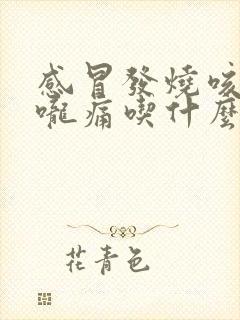 感冒發燒咳
嚨痛喫什麼
花青色